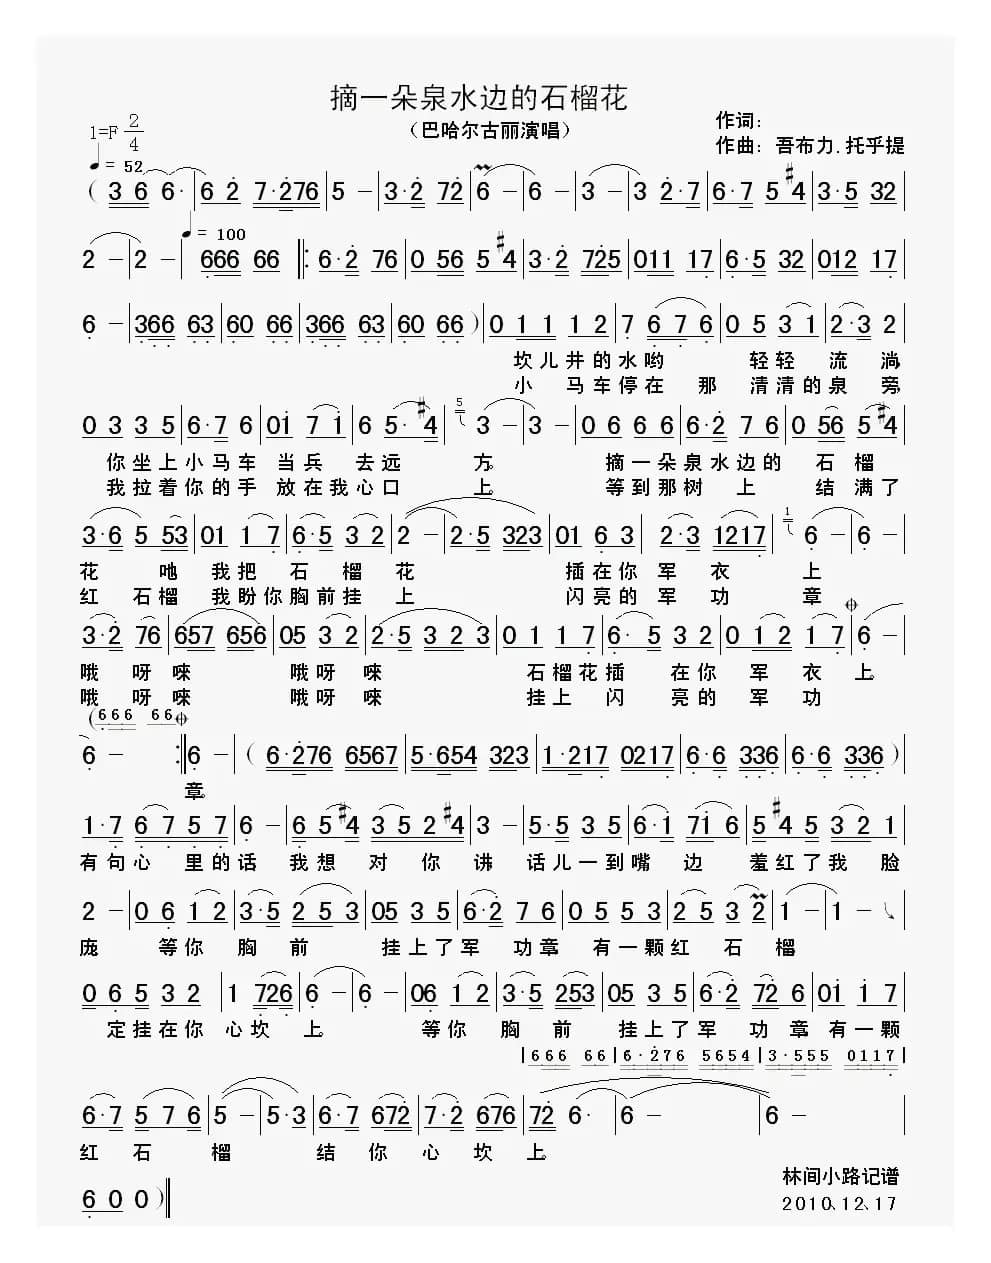 摘一朵泉水边的石榴花
（巴哈尔古丽演唱）
作词：
作曲：吾布力.托乎提
1=F 2/4
♩= 52
(3 6 6· | 6 2 7·276 | 5 - | 3·2 72 | 6 - | 6 - | 3 - | 3 2·7 | 6·7 5 #4 | 3·5 32 |
♩= 100
2 - | 2 - | 666 66 ‖: 6·2 76 | 0 56 5 #4 | 3·2 725 | 011 17 | 6·5 32 | 012 17 |
6 - | 366 63 | 60 66 | 366 63 | 60 66 ) | 0 1 1 1 2 | 7 6 7 6 | 0 5 3 1 | 2·3 2 |
坎儿井的水哟 轻轻 流淌。
小 马车停在 那 清清的泉 旁。
0 3 3 5 | 6·7 6 | 01 7 1 | 6 5· #4 | 5 3 - | 3 - | 0 6 6 6 | 6·2 7 6 | 0 56 5 #4 |
你坐上小马车 当兵 去远 方。 摘一朵泉水边的 石榴
我拉着你的手 放在我心口 上。 等到那树上 结满了
3·6 5 53 | 01 1 7 | 6·5 3 2 | 2 - | 2·5 323 | 01 6 3 | 2·3 1217 | 1 6 - | 6 - |
花 吔 我把 石 榴 花 插在你 军 衣 上
红 石榴 我盼你胸前挂 上 闪亮的 军 功 章
3·2 76 | 657 656 | 05 3 2 | 2·5 3 2 3 | 0 1 1 7 | 6· 5 3 2 | 0 1 2 1 7 | 6 - |
哦 呀 唻 哦呀 唻 石榴花插 在你 军 衣 上。
哦 呀 唻 哦呀 唻 挂上 闪 亮的 军 功
(666 66
6 - :‖ 6 - | ( 6·276 6567 | 5·654 323 | 1·217 0217 | 6·6 336 | 6·6 336 ) |
章。
1·7 6 7 5 7 | 6 - | 6 5 #4 3 5 2 #4 | 3 - | 5·5 3 5 | 6·1 71 6 | 5 #4 5 3 2 1 |
有句心 里的话 我想 对 你 讲 话儿一到嘴 边 羞红了我 脸
2 - | 0 6 1 2 | 3·5 2 5 3 | 05 3 5 | 6·2 7 6 | 0 5 5 3 | 2 5 3 2 | 1 - | 1 - |
庞 等你 胸 前 挂上了军 功章 有一颗红 石 榴
0 6 5 3 2 | 1 726 | 6 - | 6 - | 06 1 2 | 3·5 253 | 05 3 5 | 6·2 72 6 | 01 1 7 |
定挂在你 心坎 上。 等你 胸 前 挂上了军 功 章有一颗
| 666 66 | 6·276 5654 | 3·555 0117 |
6·7 5 7 6 | 5 - | 5·3 | 6·7 672 | 7·2 676 | 72 6· | 6 - | 6 - |
红 石 榴 结 你 心 坎 上。
6 0 0 )‖
林间小路记谱
2010、12、17